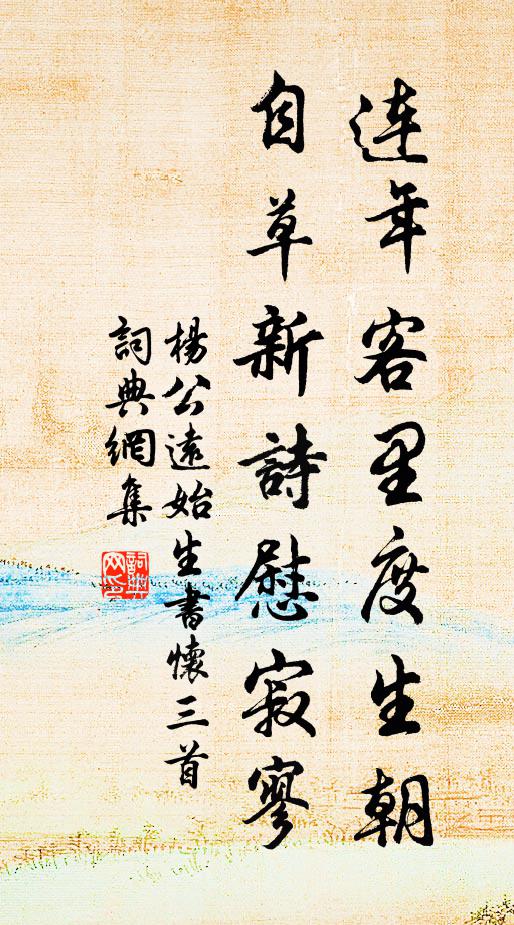 連年客里度生朝
自草新詩慰寂寥
楊公遠始生書懷三首
詞典網集